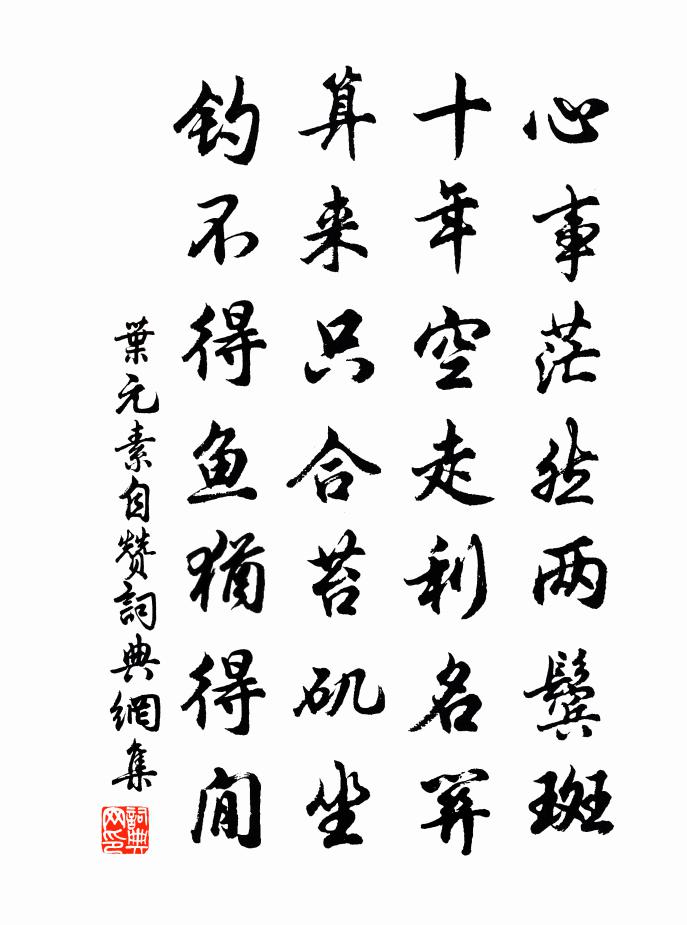 心事茫然两鬓斑
十年空走利名関
算来只合苔矶坐
钓不得鱼猶得閒
葉元素自赞詞典網集
詞典网印